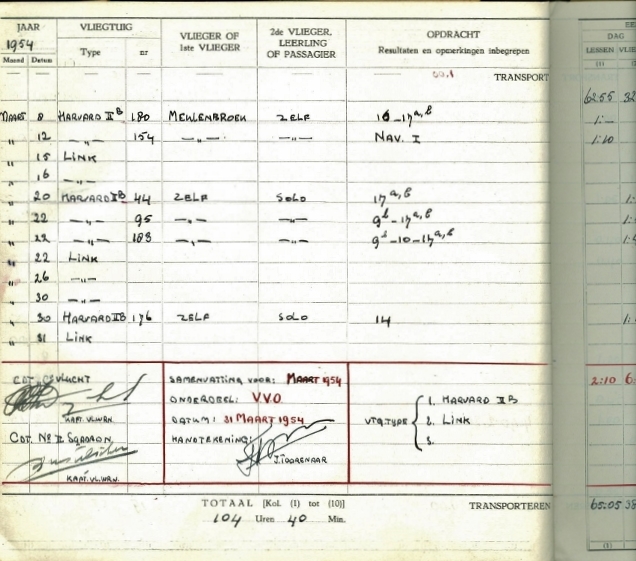 JAAR VLIEGTUIG VLIEGER OF 1ste VLIEGER 2de VLIEGER, LEERLING OF PASSAGIER OPDRACHT
1954 Type nr Resultaten en opmerkingen inbegrepen DAG
Maand Datum LESSEN
(1) (2)
TRANSPORT
62:55 32
MAART 8 HARVARD IIB 180 MEULENBROEK ZELF 16-17a,b 1:-
" 12 -"- 154 -"- -"- NAV. I 1:10
" 15 LINK
" 16 -"-
" 20 HARVARD IIB 44 ZELF SOLO 17a,b
" 22 -"- 95 -"- -"- 9b-17a,b
" 22 -"- 183 -"- 9b-10-17a,b
" 22 LINK
" 26 -"-
" 30 -"-
" 30 HARVARD IIB 176 ZELF SOLO 14
" 31 LINK
CDT. VLUCHT SAMENVATTING VOOR: MAART 1954 2:10
ONDERDEEL: V.V.O. 1. HARVARD IIB
KAPT. VL.WRN. DATUM: 31 MAART 1954 VTG.TYPE 2. LINK
CDT. No II SQADRON HANDTEKENING: 3.
J.TOORENAAR
KAPT. VL.WRN.
TOTAAL [Kol. (1) tot (10)] TRANSPORTEREN 65:05 38
104 Uren 40 Min.
(1)